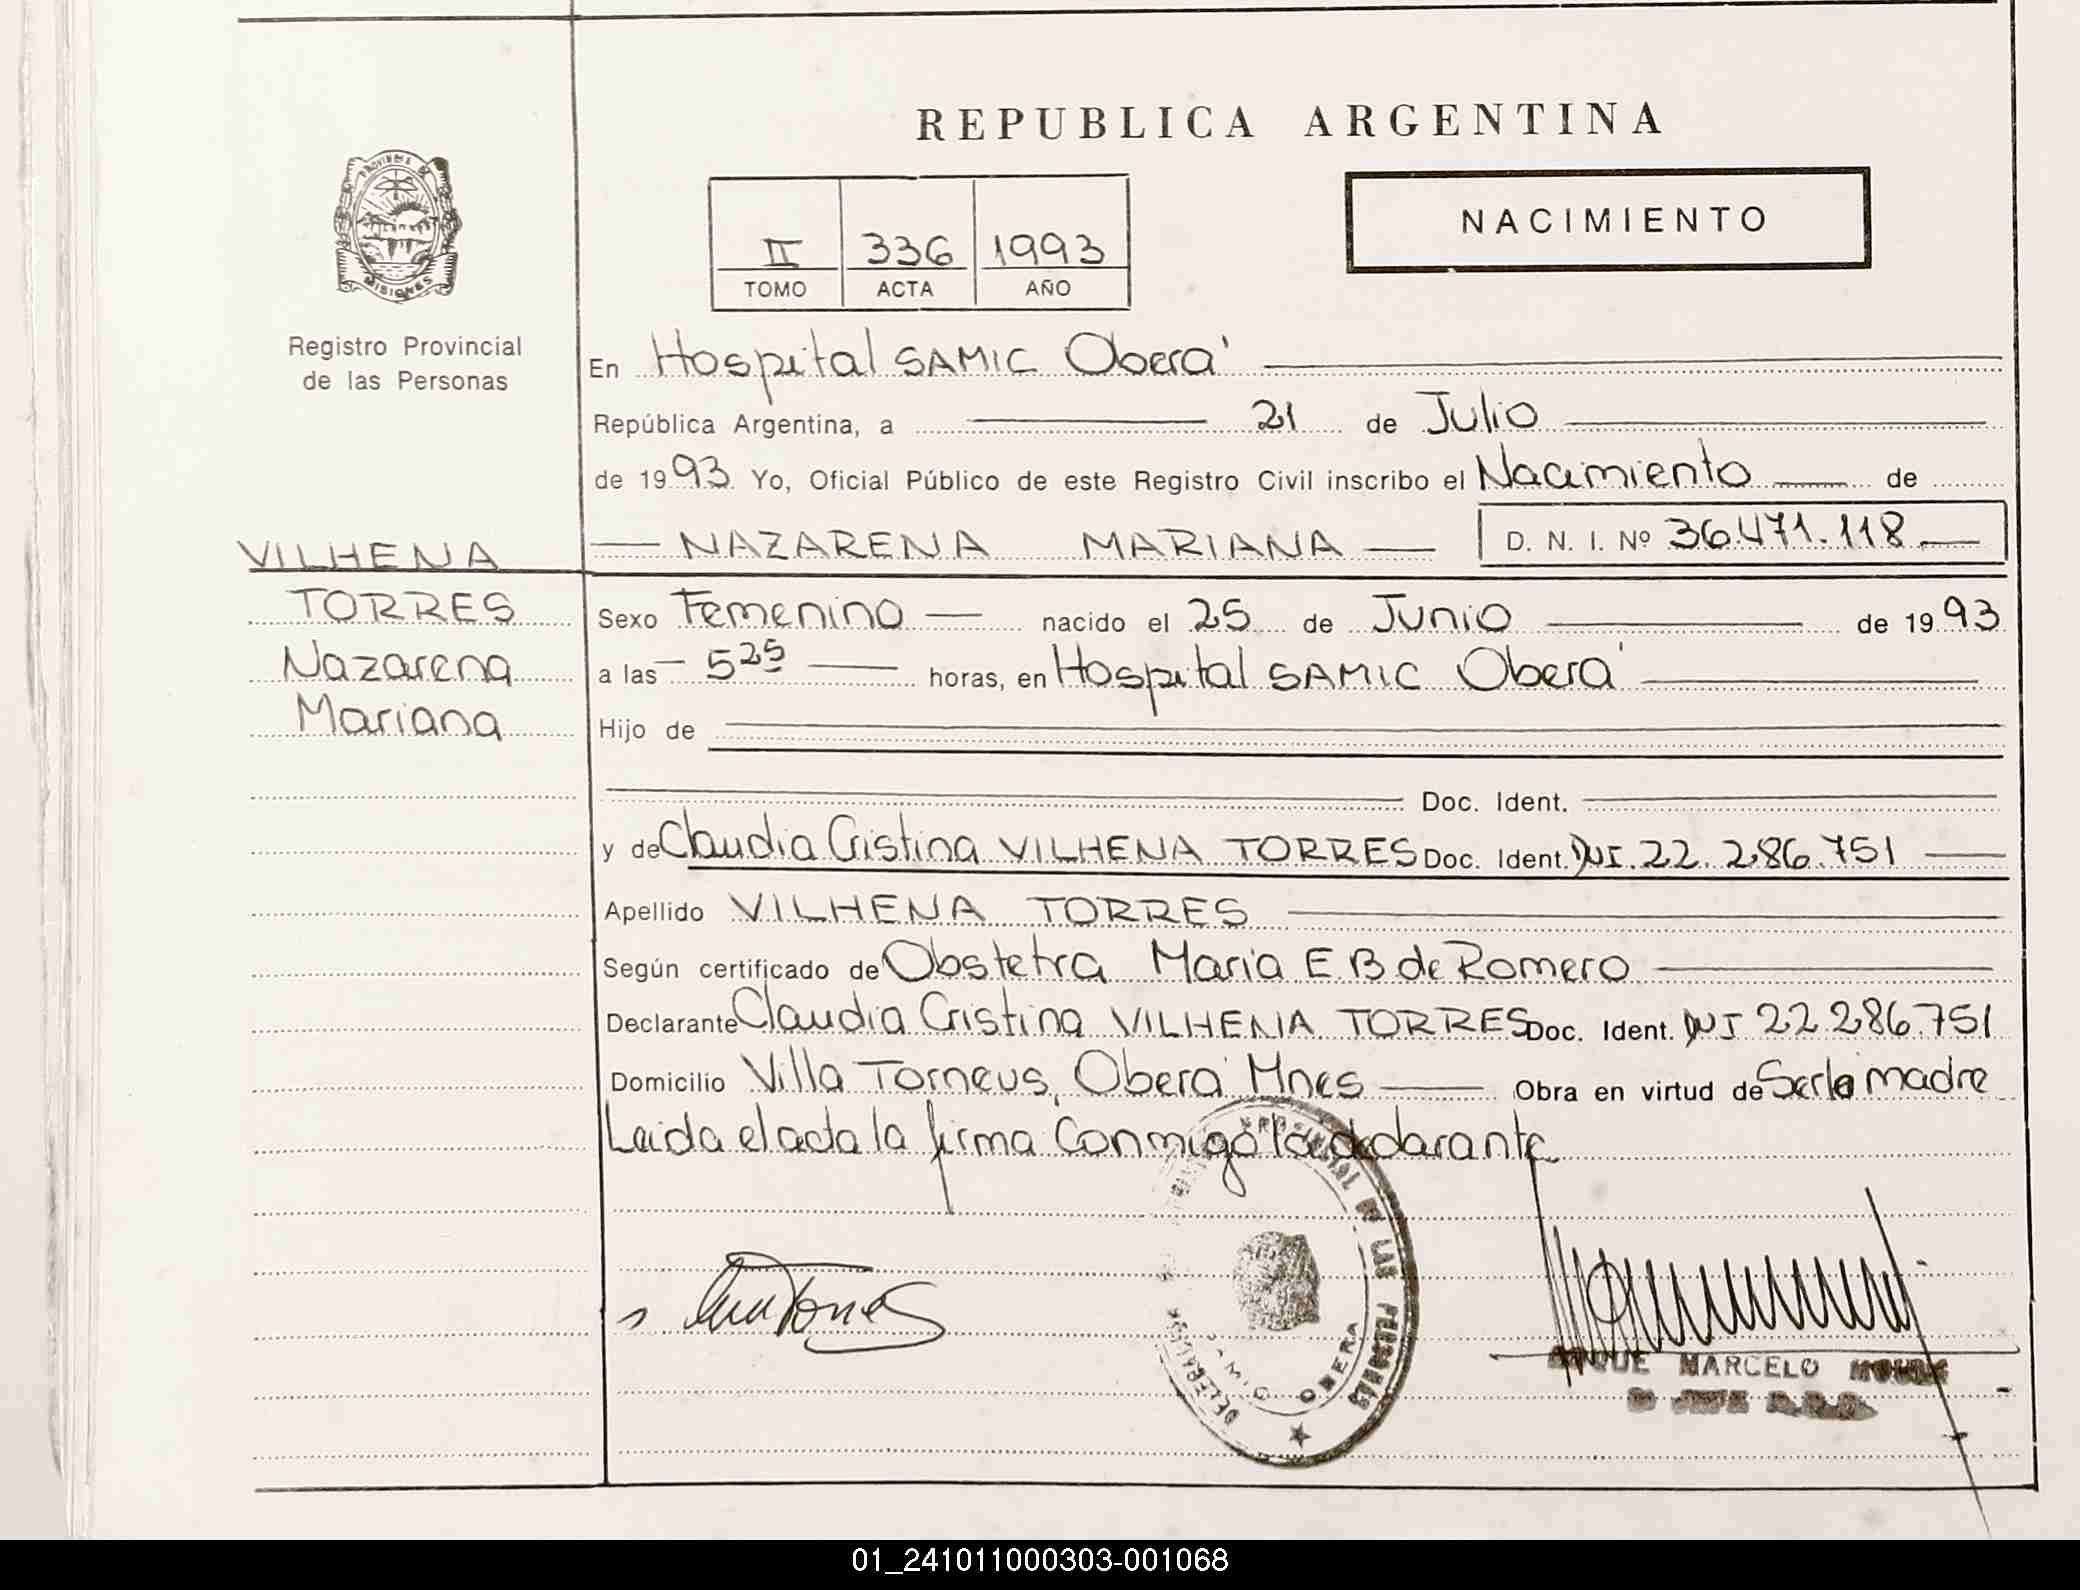 REPUBLICA ARGENTINA
PROVINCIA DE
MISIONES
Registro Provincial
de las Personas
NACIMIENTO
II 336 1993
TOMO ACTA AÑO
En Hospital SAMIC Oberá
República Argentina, a 21 de Julio
de 1993 Yo, Oficial Público de este Registro Civil inscribo el Nacimiento de
NAZARENA MARIANA D. N. I. Nº 36.471.118
VILHENA
TORRES
Nazarena
Mariana
Sexo Femenino nacido el 25 de Junio de 1993
a las 5 25 horas, en Hospital SAMIC Oberá
Hijo de
Doc. Ident.
y de Claudia Cristina VILHENA TORRES Doc. Ident. DNI. 22.286.751
Apellido VILHENA TORRES
Según certificado de Obstetra Maria E.B de Romero
Declarante Claudia Cristina VILHENA TORRES Doc. Ident. DNI 22.286.751
Domicilio Villa Torneus, Oberá Mnes Obra en virtud de Serla madre
Leida el acta la firma Conmigo la declarante
DE LAS PERSONAS
OBERA
MARCELO
01_241011000303-001068